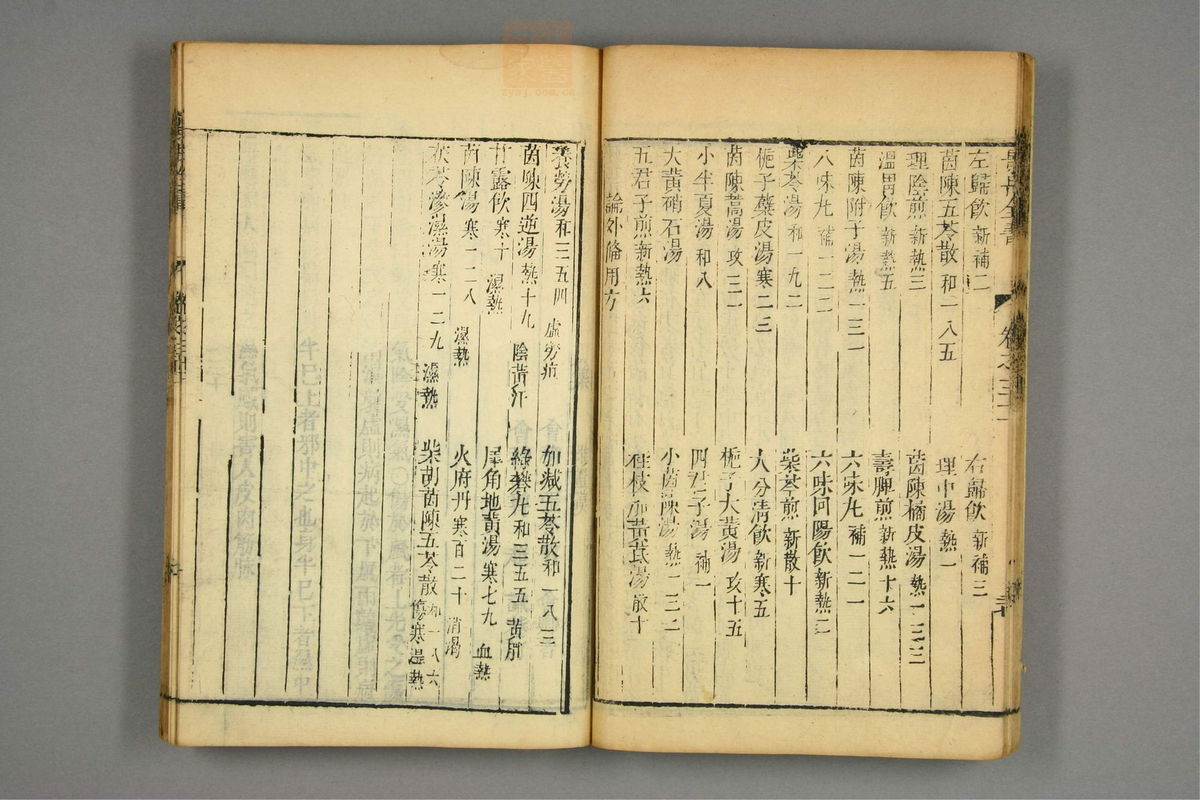 景岳全書 卷之三十一
左歸飲 新補二 右歸飲 新補三
茵陳五苓散 和一八五 理中湯 熱一
理陰煎 新熱三 茵陳橘皮湯 熱一三三
溫胃飲 新熱五 壽脾煎 新熱十六
茵陳附子湯 熱一三一 六味丸 補一二一
八味丸 補一二二 六味回陽飲 新熱二
柴苓湯 和一九二 柴苓煎 新散十
梔子蘗皮湯 寒二三 大分清飲 新寒五
茵陳蒿湯 攻三一 梔子大黃湯 攻十五
小半夏湯 和八 四君子湯 補一
大黃硝石湯 小茵陳湯 熱一三二
五君子煎 新熱六 桂枝加黃芪湯 散十
論外備用方
養勞湯 和三五四 虛勞疸 加減五苓散 和一八三
茵陳四逆湯 熱十九 陰黃汗 綠礬丸 和三五五 黃胖
甘露飲 寒十 濕熱 犀角地黃湯 寒七九 血熱
茵陳湯 寒一二八 濕熱 火府丹 寒百二十 消渴
茯苓滲濕湯 寒一二九 濕熱 柴胡茵陳五苓散 和一八六 傷寒溫熱